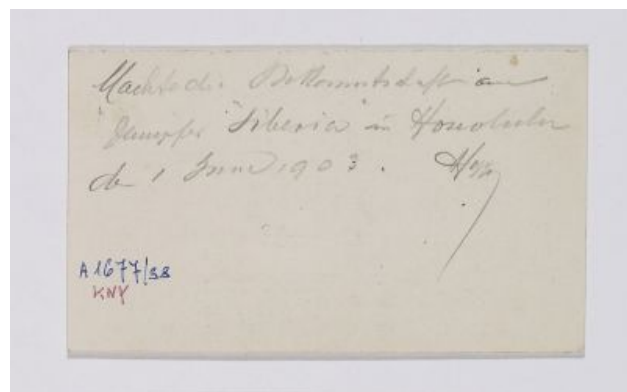 Machte die Bekanntschaft am
Dampfer "Siberia" in Honolulu
de 1 June 1903.
A 1677/38
KNY